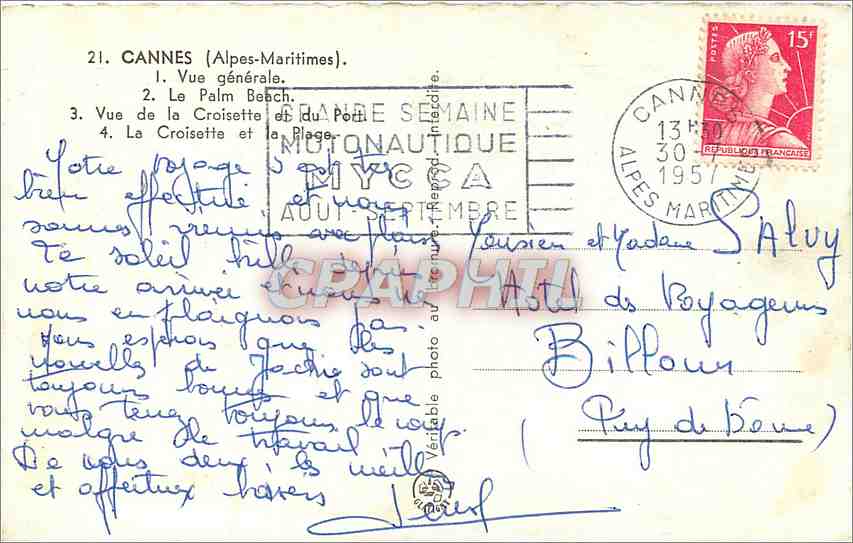 21. CANNES (Alpes-Maritimes).
1. Vue générale.
2. Le Palm Beach.
3. Vue de la Croisette et du Port.
4. La Croisette et la Plage.
GRANDE SEMAINE
MOTONAUTIQUE
MYCCA
AOUT-SEPTEMBRE
POSTES
15F
REPUBLIQUE FRANCAISE
CANNES
13H30
30 - 7
1957
ALPES MARITIMES
Notre voyage s'est
bien effectué et nous
sommes réunis avec plaisir
Le soleil brille depuis
notre arrivée et nous ne
nous en plaignons pas.
Nous espérons que les
nouvelles de Jackie sont
toujours bonnes et que
vous tenez toujours le coup
malgré le travail.
De nous deux les meill
et affectueux baisers
Monsieur et Madame SALVY
Hôtel des Voyageurs
Billom
(Puy de Dôme)
Véritable photo au bromure. Reprod. interdite.
CPARHIL